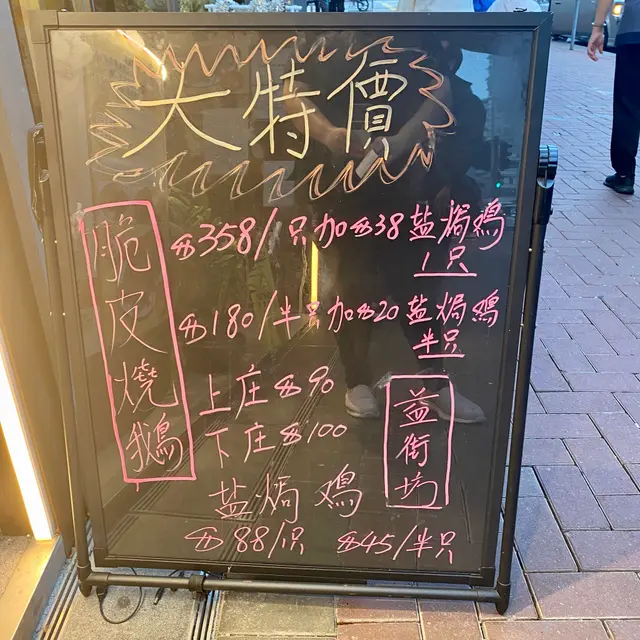 大特價
脆皮燒鵝
$358/只加$38盐焗鸡
1只
$180/半只加$20盐焗鸡
半只
上庄$90
下庄$100
益街坊
盐焗鸡
$88/只 $45/半只